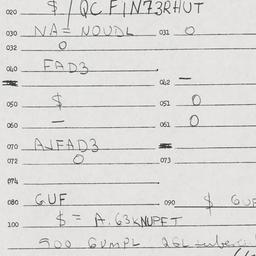 020 $ / QC FIN73RHUT
030 NA= NOVDL 031 O
032 O
040 FAD3
042 —
050 $ 051 O
060 — 061 O
070 AJFAD3
072 O 073
074
080 GUF 090 $ GUF
100 $ = A.63KNUPFT
500 GVMPL